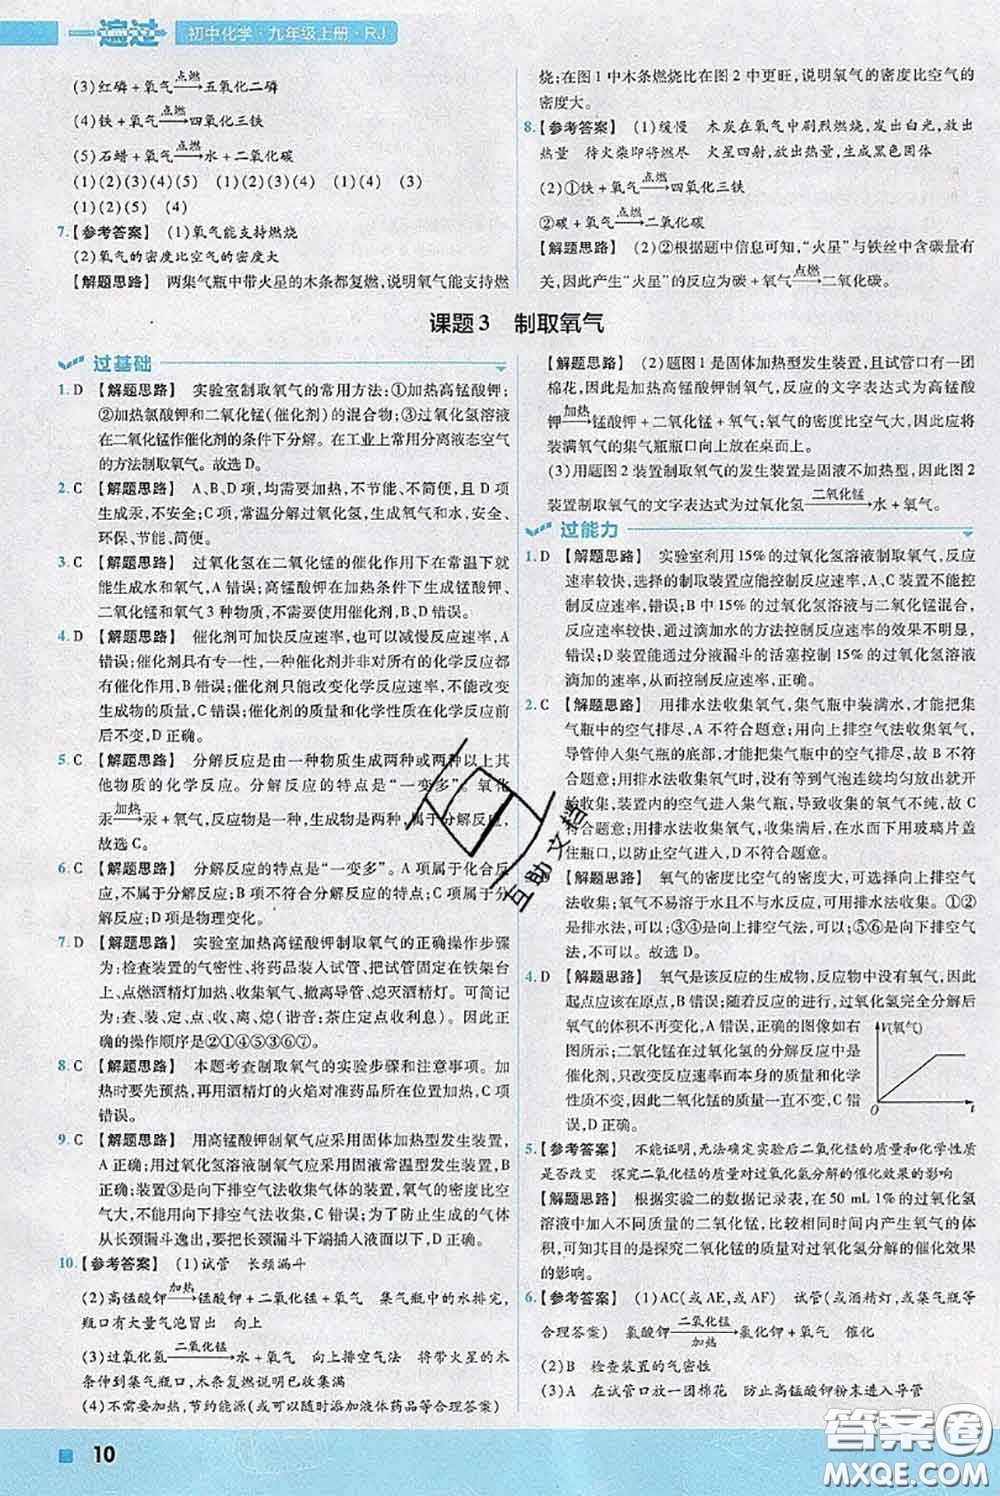 一遍过 初中化学·九年级上册·RJ
(3)红磷+氧气 点燃→ 五氧化二磷
(4)铁+氧气 点燃→ 四氧化三铁
(5)石蜡+氧气 点燃→ 水+二氧化碳
(1)(2)(3)(4)(5) (1)(2)(3)(4) (1)(4) (3)
(1)(2)(5) (4)
7.【参考答案】 (1)氧气能支持燃烧
(2)氧气的密度比空气的密度大
【解题思路】 两集气瓶中带火星的木条都复燃,说明氧气能支持燃
烧;在图1中木条燃烧比在图2中更旺,说明氧气的密度比空气的
密度大。
8.【参考答案】 (1)缓慢 木炭在氧气中剧烈燃烧,发出白光,放出
热量 待火柴即将燃尽 火星四射,放出热量,生成黑色固体
(2)①铁+氧气 点燃→ 四氧化三铁
②碳+氧气 点燃→ 二氧化碳
【解题思路】 (2)②根据题中信息可知,“火星”与铁丝中含碳量有
关,因此产生“火星”的反应为碳+氧气 点燃→ 二氧化碳。
课题3 制取氧气
过基础
1. D 【解题思路】 实验室制取氧气的常用方法:①加热高锰酸钾;
②加热氯酸钾和二氧化锰(催化剂)的混合物;③过氧化氢溶液
在二氧化锰作催化剂的条件下分解。在工业上常用分离液态空气
的方法制取氧气。故选D。
2. C 【解题思路】 A、B、D项,均需要加热,不节能、不简便,且D项
生成汞,不安全;C项,常温分解过氧化氢,生成氧气和水,安全、
环保、节能、简便。
3. C 【解题思路】 过氧化氢在二氧化锰的催化作用下在常温下就
能生成水和氧气,A错误;高锰酸钾在加热条件下生成锰酸钾、
二氧化锰和氧气3种物质,不需要使用催化剂,B、D错误。
4. D 【解题思路】 催化剂可加快反应速率,也可以减慢反应速率,A
错误;催化剂具有专一性,一种催化剂并非对所有的化学反应都
有催化作用,B错误;催化剂只能改变化学反应速率,不能改变
生成物的质量,C错误;催化剂的质量和化学性质在化学反应前
后不变,D正确。
5. C 【解题思路】 分解反应是由一种物质生成两种或两种以上其
他物质的化学反应。分解反应的特点是“一变多”。氧化
汞 加热→ 汞+氧气,反应物是一种,生成物是两种,属于分解反应,
故选C。
6. C 【解题思路】 分解反应的特点是“一变多”。A项属于化合反
应,不属于分解反应;B项不符合分解反应的特点;C项属于分解
反应;D项是物理变化。
7. D 【解题思路】 实验室加热高锰酸钾制取氧气的正确操作步骤
为:检查装置的气密性、将药品装入试管、把试管固定在铁架台
上、点燃酒精灯加热、收集氧气、撤离导管、熄灭酒精灯。可简记
为:查、装、定、点、收、离、熄(谐音:茶庄定点收利息)。因此正
确的操作顺序是②①④⑤③⑥⑦。
8. C 【解题思路】 本题考查制取氧气的实验步骤和注意事项。加
热时要先预热,再用酒精灯的火焰对准药品所在位置加热,C项
错误。
9. C 【解题思路】 用高锰酸钾制氧气应采用固体加热型发生装置,
A正确;用过氧化氢溶液制氧气应采用固液常温型发生装置,B
正确;装置③是向下排空气法收集气体的装置,氧气的密度比空
气大,不能用向下排空气法收集,C错误;为了防止生成的气体
从长颈漏斗逸出,应使长颈漏斗下端插入液面下,D正确。
10.【参考答案】 (1)试管 长颈漏斗
(2)高锰酸钾 加热→ 锰酸钾+二氧化锰+氧气 集气瓶中的水排完,
瓶口有大量气泡冒出 二
(3)过氧化氢 二氧化锰→ 水+氧气 向上排空气法 将带火星的木
条伸到集气瓶口,木条复燃,说明已收集满
(4)不需要加热,节约能源(或可以随时添加液体药品等合理答案)
【解题思路】 (2)题图1是固体加热型发生装置,且试管口有一团
棉花,因此是加热高锰酸钾制氧气,反应的文字表达式为高锰酸
钾 加热→ 锰酸钾+二氧化锰+氧气;氧气的密度比空气大,因此应将
装满氧气的集气瓶瓶口向上放在桌面上。
(3)用题图2装置制取氧气的发生装置是固液不加热型,因此图2
装置制取氧气的文字表达式为过氧化氢 二氧化锰→ 水+氧气。
过能力
1. D 【解题思路】 实验室利用15%的过氧化氢溶液制取氧气,反应
速率较快,选择的制取装置应能控制反应速率,A、C装置不能控
制反应速率,错误;B中15%的过氧化氢溶液与二氧化锰混合,
反应速率较快,通过滴加水的方法控制反应速率的方法达不到目
的,错误;D装置能通过分液漏斗的活塞控制15%的过氧化氢溶液
滴加的速率,从而控制反应速率,正确。
2. C 【解题思路】 用排水法收集氧气,集气瓶中装满水,才能把集
气瓶中的空气排尽,A不符合题意;用向上排空气法收集氧气,
导管伸入集气瓶的底部,才能把集气瓶中的空气排尽,故B不符
合题意;用排水法收集氧气时,没有等到气泡连续均匀放出就开
始收集,装置中的空气进入集气瓶,导致收集的氧气不纯,故C
符合题意;用排水法收集氧气,收集满后,在水面下用玻璃片盖住
瓶口,以防止空气进入,D不符合题意。
【解题思路】 氧气的密度比空气的密度大,可选择向上排空气法
收集;氧气不易溶于水且不与水反应,可用排水法收集。①②
是排水法;③④是向上排空气法,可行;⑤⑥是向下排空气
法,不可行。故选D。
4. D 【解题思路】 氧气是该反应的生成物,反应物中没有氧气,因此
起点应该在原点,B错误;随着反应的进行,过氧化氢完全分解后
氧气的体积不再变化,A错误,正确的图像如右
图所示;二氧化锰在过氧化氢的分解反应中是
催化剂,只改变反应速率而本身的质量和化学
性质不变,因此二氧化锰的质量一直不变,C错
误,D正确。
V(氧气)
O t
5.【参考答案】 不能证明,无法确定实验后二氧化锰的质量和化学性质
是否改变 探究二氧化锰的质量对过氧化氢分解的催化效果的影响
【解题思路】 根据实验二的数据记录表,在50 mL 1%的过氧化氢
溶液中加入不同质量的二氧化锰,比较相同时间内产生氧气的体
积,可知其目的是探究二氧化锰的质量对过氧化氢分解的催化效果
的影响。
6.【参考答案】 (1)AC(或AE,或AF) 试管(或酒精灯,或集气瓶等
合理答案) 氯酸钾 二氧化锰/加热→ 氯化钾+氧气 催化
(2)B 检查装置的气密性
(3)A 在试管口放一团棉花 防止高锰酸钾粉末进入导管
互助文档
答案圈
MXQE.COM
10